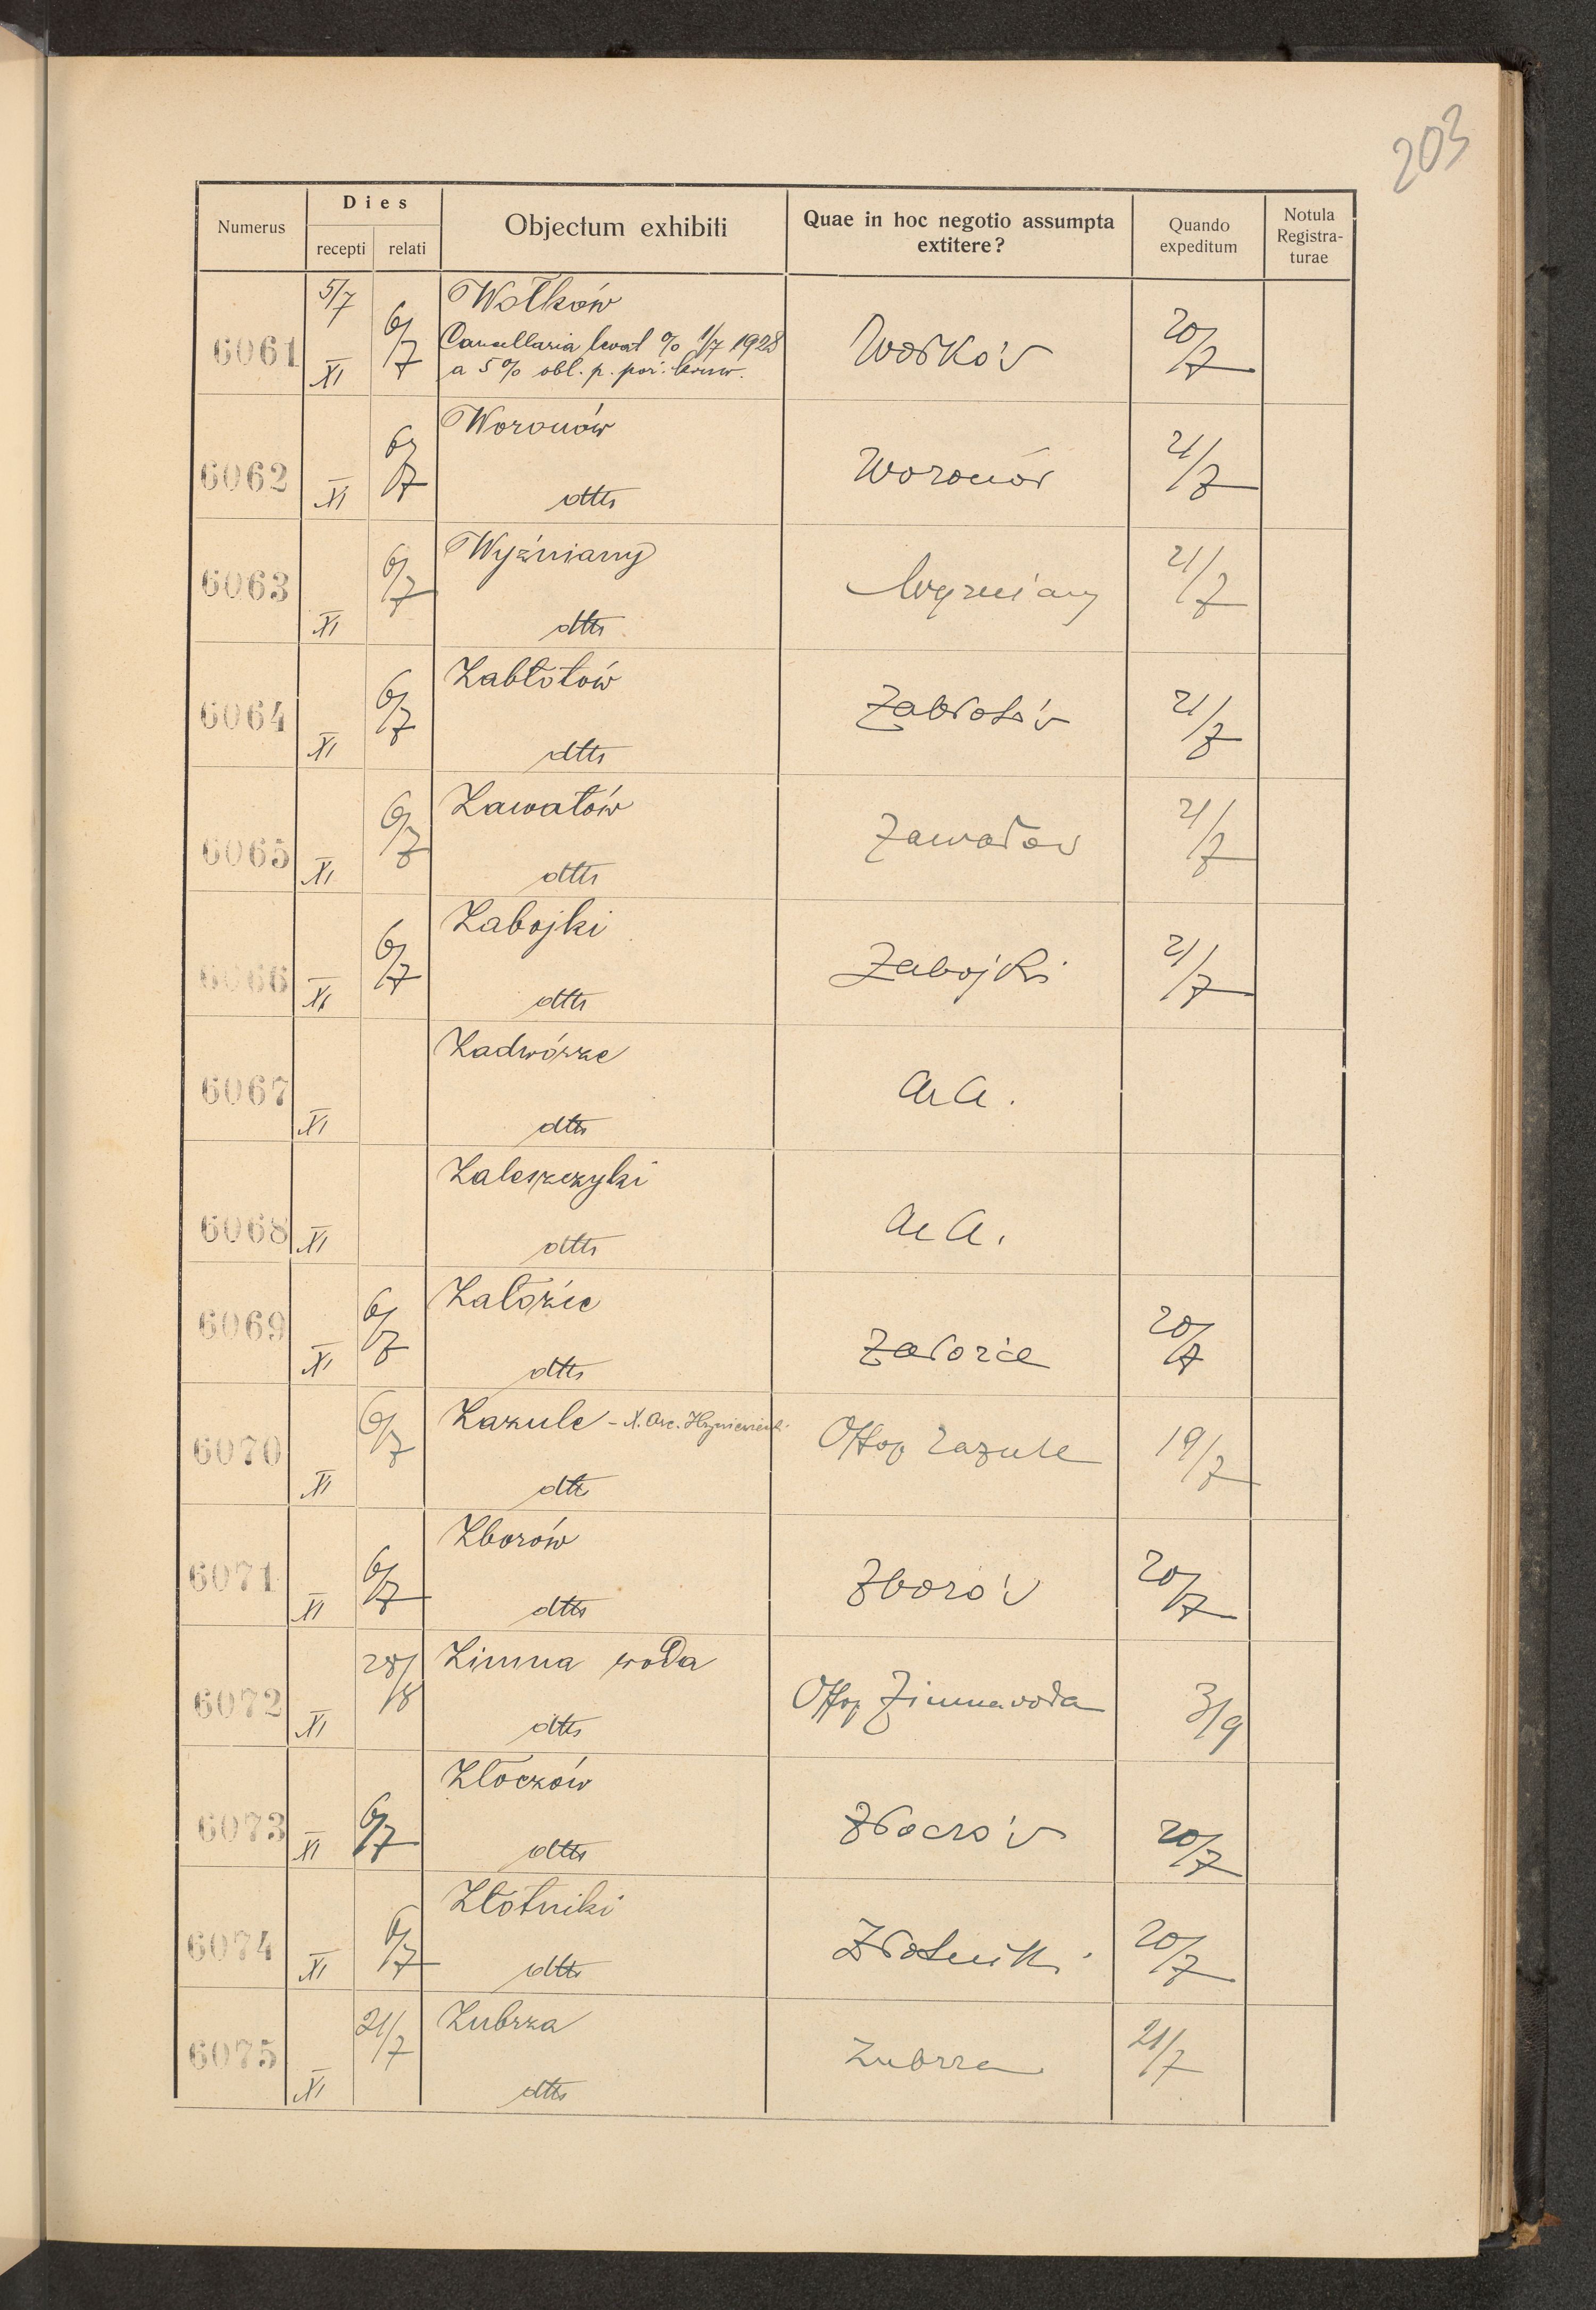 203
Numerus Dies Objectum exhibiti Quae in hoc negotio assumpta extitere? Quando expeditum Notula Registra-turae
recepti relati
6061 5/7 XI 6/7 Wołków Wołków 20/7
Cancellaria kwot % 1/7 1928
a 5% obl. p. poż. konw.
6062 XI 6/7 Woronów Woronów 21/7
dtto
6063 XI 6/7 Wyźniany Wyzniany 21/7
dtto
6064 XI 6/7 Zabłotów Zabłotów 21/7
dtto
6065 XI 6/7 Zawałów Zawałow 21/7
dtto
6066 XI 6/7 Zabojki Zabojki 21/7
dtto
6067 XI Zadwórze A A.
dtto
6068 XI Zaleszczyki A A.
dtto
6069 XI 6/7 Załoźce Załozce 20/7
dtto
6070 XI 6/7 Zazule - X. Hryniewiecki Zazule 19/7
dtto
6071 XI 6/7 Zborów Zborów 20/7
dtto
6072 XI 28/8 Zimna woda Zimnawoda 3/9
dtto
6073 XI 6/7 Złoczów Złoczów 20/7
dtto
6074 XI 6/7 Złotniki Złotniki 20/7
dtto
6075 XI 21/7 Zubrza Zubrza 21/7
dtto